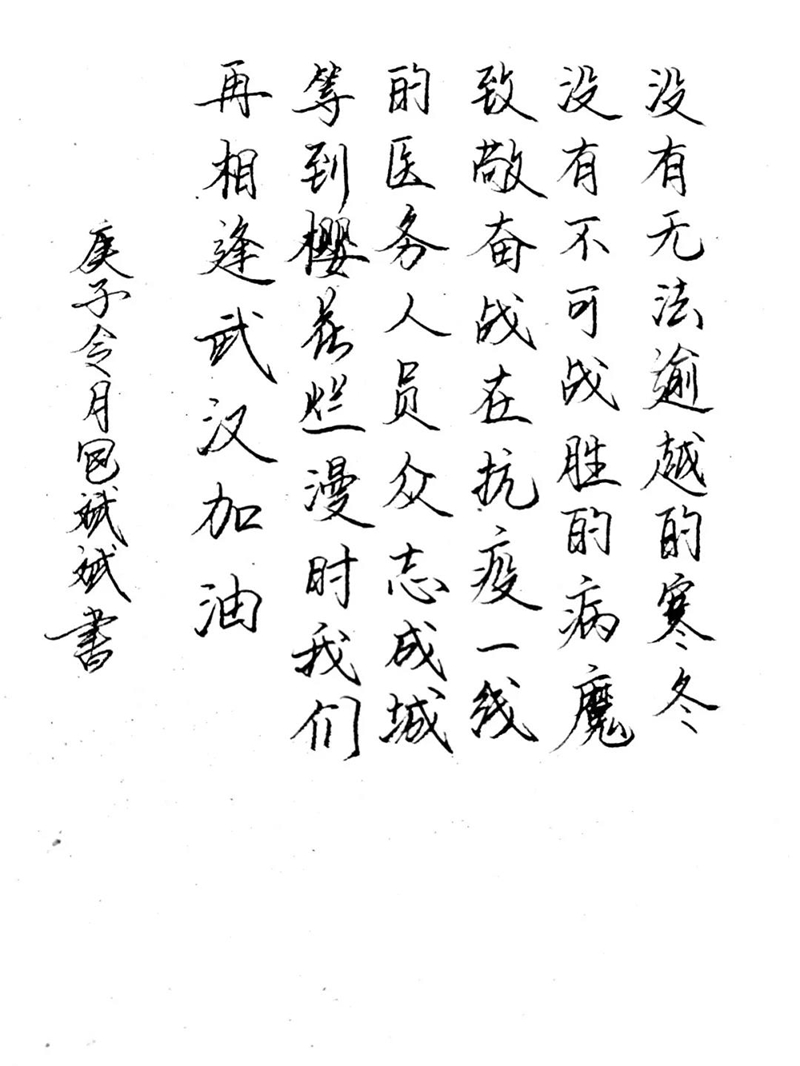 没有无法逾越的寒冬
没有不可战胜的病魔
致敬奋战在抗疫一线
的医务人员众志成城
等到樱花烂漫时我们
再相逢武汉加油
庚子令月包斌斌书